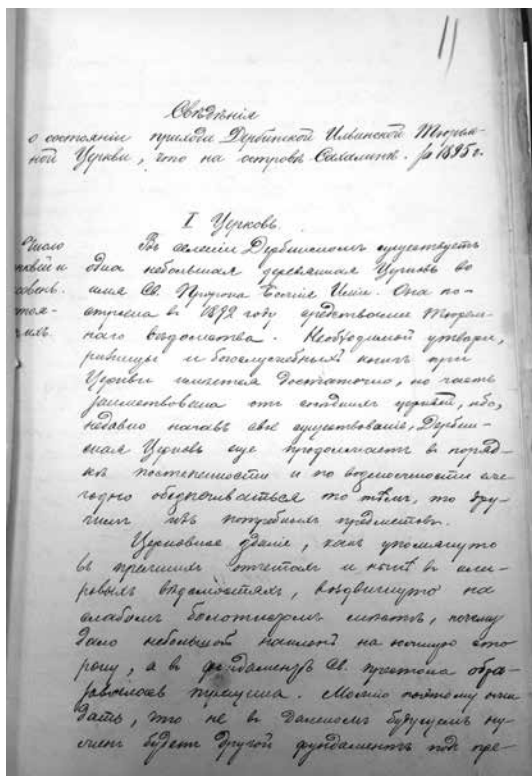 11
Свѣдѣнія
о состояніи прихода Дербинской Ильинской Тюрем-
ной Церкви, что на островѣ Сахалинѣ. за 1895 г.
I Церковь.
Число
Въ селеніи Дербинскомъ существуетъ
одна небольшая деревянная Церковь во
имя Св. Пророка Божія Иліи. Она по-
строена въ 1892 году средствами Тюрем-
наго вѣдомства. Необходимой утвари,
ризницы и богослужебныхъ книгъ при
Церкви имѣется достаточно, но часть
заимствована отъ сосѣднихъ церквей, ибо,
недавно начавъ свое существованіе, Дербин-
ская Церковь еще продолжаетъ въ поряд-
кѣ постепенности и по возможности еже-
годно обезпечиваться то тѣмъ, то дру-
гимъ изъ потребныхъ предметовъ.
Церковное зданіе, какъ упомянуто
въ прежнихъ отчетахъ и
вѣдомостяхъ, воздвигнуто на
слабомъ болотистомъ мѣстѣ, почему
дало небольшой наклонъ на южную сто-
рону, а въ фундаментѣ Св. престола обра-
зовалась трещина. Можно поэтому ожи-
дать, что не въ далекомъ будущемъ ну-
женъ будетъ другой фундаментъ подъ пре-